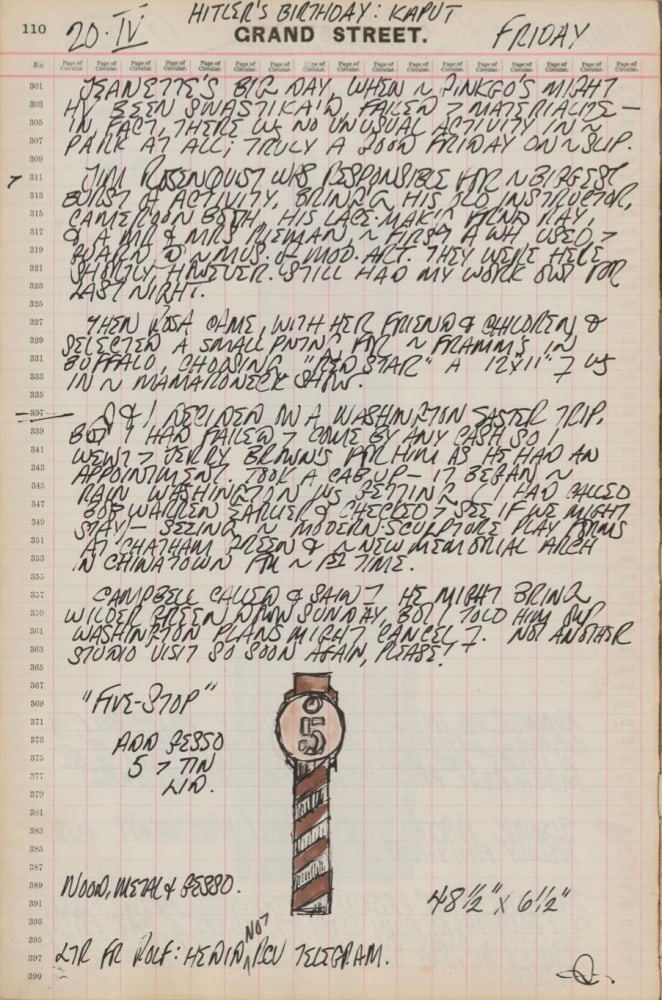 HITLER'S BIRTHDAY: KAPUT
110 20·IV GRAND STREET. FRIDAY
No. Page of Circular. Page of Circular. Page of Circular. Page of Circular. Page of Circular. Page of Circular. Page of Circular. Page of Circular. Page of Circular. Page of Circular. Page of Circular. Page of Circular. Page of Circular.
301 JEANETTE'S BIG DAY, WHEN ~ PINKGO'S MIGHT
303 HV BEEN SWASTIKA'D, FAILED > MATERIALIZE —
305 IN FACT, THERE WS NO UNUSUAL ACTIVITY IN ~
307 PARK AT ALL; TRULY A GOOD FRIDAY ON ~ SLIP.
309
311 JIM ROSENQUIST WAS RESPONSIBLE FOR ~ BIGGEST
313 BURST OF ACTIVITY, BRING'G HIS OLD INSTRUCTOR,
315 CAMERON BOOTH, HIS LACE-MAK'G FRIEND RAY,
317 & A MR & MRS RIEMAN, ~ FIRST A WH USED >
319 BOARD @ ~ MUS. OF MOD. ART. THEY WERE HERE
321 SHORTLY, HOWEVER. STILL HAD MY WORK OUT FOR
323 LAST NIGHT.
325
327 THEN ROSA CAME, WITH HER FRIEND & CHILDREN &
329 SELECTED A SMALL PNTNG FOR ~ FRAMM'S IN
331 BUFFALO, CHOOSING "RED STAR" A 12X11" 7 WS
333 IN ~ MAMARONECK SHOW.
335
337 Q & I DECIDED ON A WASHINGTON EASTER TRIP,
339 BUT I HAD FAILED > COME BY ANY CASH SO I
341 WENT > JERRY BROWN'S FOR HIM AS HE HAD AN
343 APPOINTMENT. TOOK A CAB UP — IT BEGAN ~
345 RAIN WASHINGTON WS GETTING / I HAD CALLED
347 BOB WARREN EARLIER & CHECKED > SEE IF WE MIGHT
349 STAY — SEEING ~ MODERN-SCULPTURE PLAY FORMS
351 AT CHATHAM GREEN & ~ NEW MEMORIAL ARCH
353 IN CHINATOWN FOR ~ 1ST TIME.
355
357 CAMPBELL CALLED & SAID 7 HE MIGHT BRING
359 WILDER GREEN DOWN SUNDAY, BUT I TOLD HIM OUR
361 WASHINGTON PLANS MIGHT CANCEL 7. NOT ANOTHER
363 STUDIO VISIT SO SOON AGAIN, PLEASE!
365
367
369 "FIVE-STOP"
371 5
373 ADD GESSO
375 5 > TIN
377 LID.
379
381
383
385
387
389 WOOD, METAL & GESSO.
391 48½" X 6½"
393
395 NOT
397 LTR FR ROLF: HE DIDN RCV TELEGRAM.
399